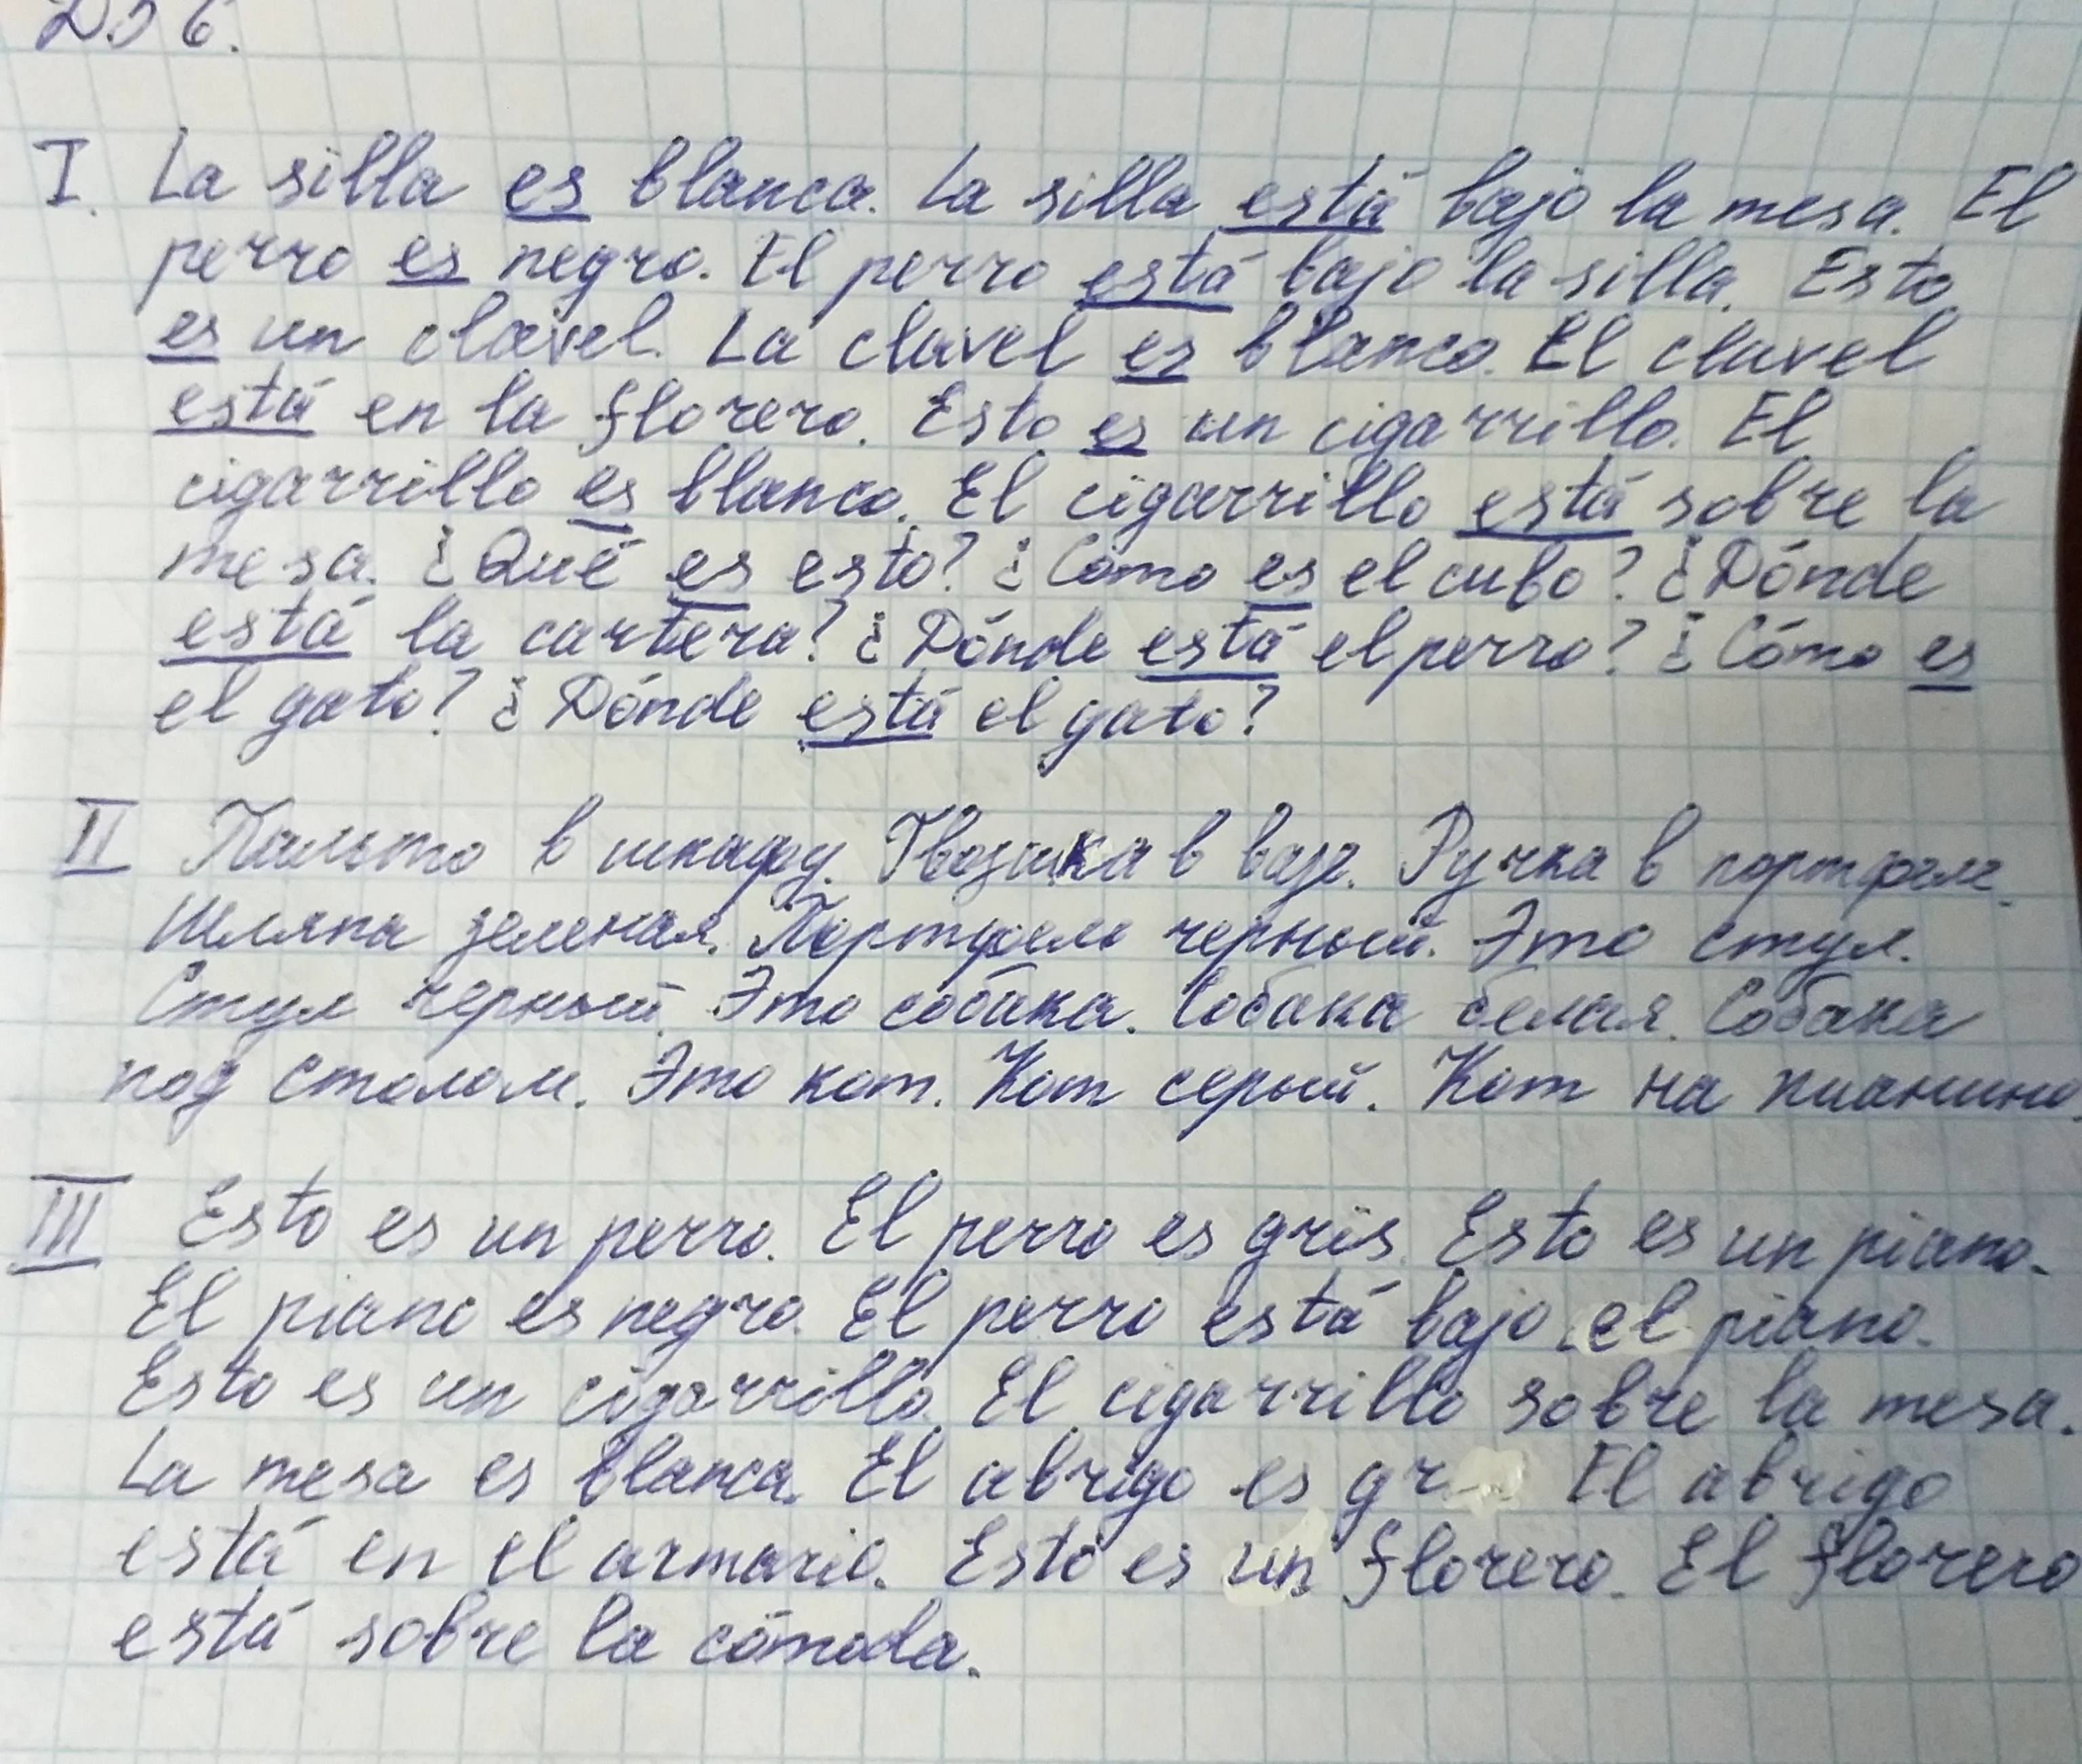 I. La silla es blanca. La silla está bajo la mesa. El
perro es negro. El perro está bajo la silla. Esto
es un clavel. La clavel es blanco. El clavel
está en la florero. Esto es un cigarrillo. El
cigarrillo es blanco. El cigarrillo está sobre la
mesa. ¿Qué es esto? ¿Cómo es el cubo? ¿Dónde
está la cartera? ¿Dónde está el perro? ¿Cómo es
el gato? ¿Dónde está el gato?
II Пальто в шкафу. Гвоздика в вазе. Ручка в портфеле.
Шляпа зеленая. Портфель черный. Это стул.
Стул черный. Это собака. Собака белая. Собака
под столом. Это кот. Кот серый. Кот на пианино.
III Esto es un perro. El perro es gris. Esto es un piano.
El piano es negro. El perro está bajo el piano.
Esto es un cigarrillo. El cigarrillo sobre la mesa.
La mesa es blanca. El abrigo es El abrigo
está en el armario. Esto es un florero. El florero
está sobre la cómoda.